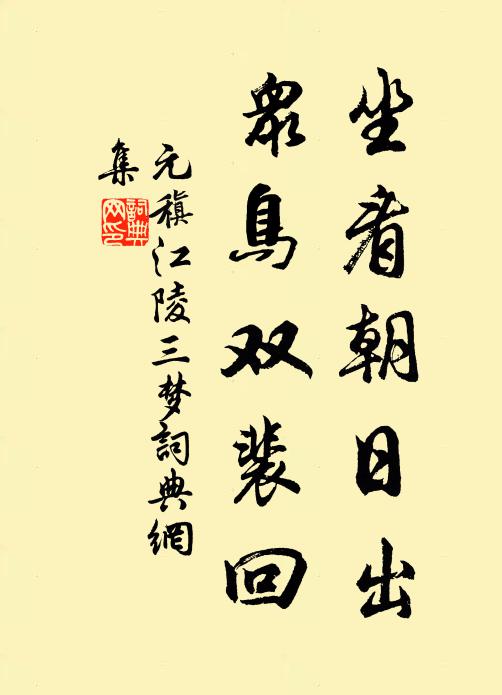 坐看朝日出
众鸟双裴回
元稹江陵三梦詞典網
集
詞典网印